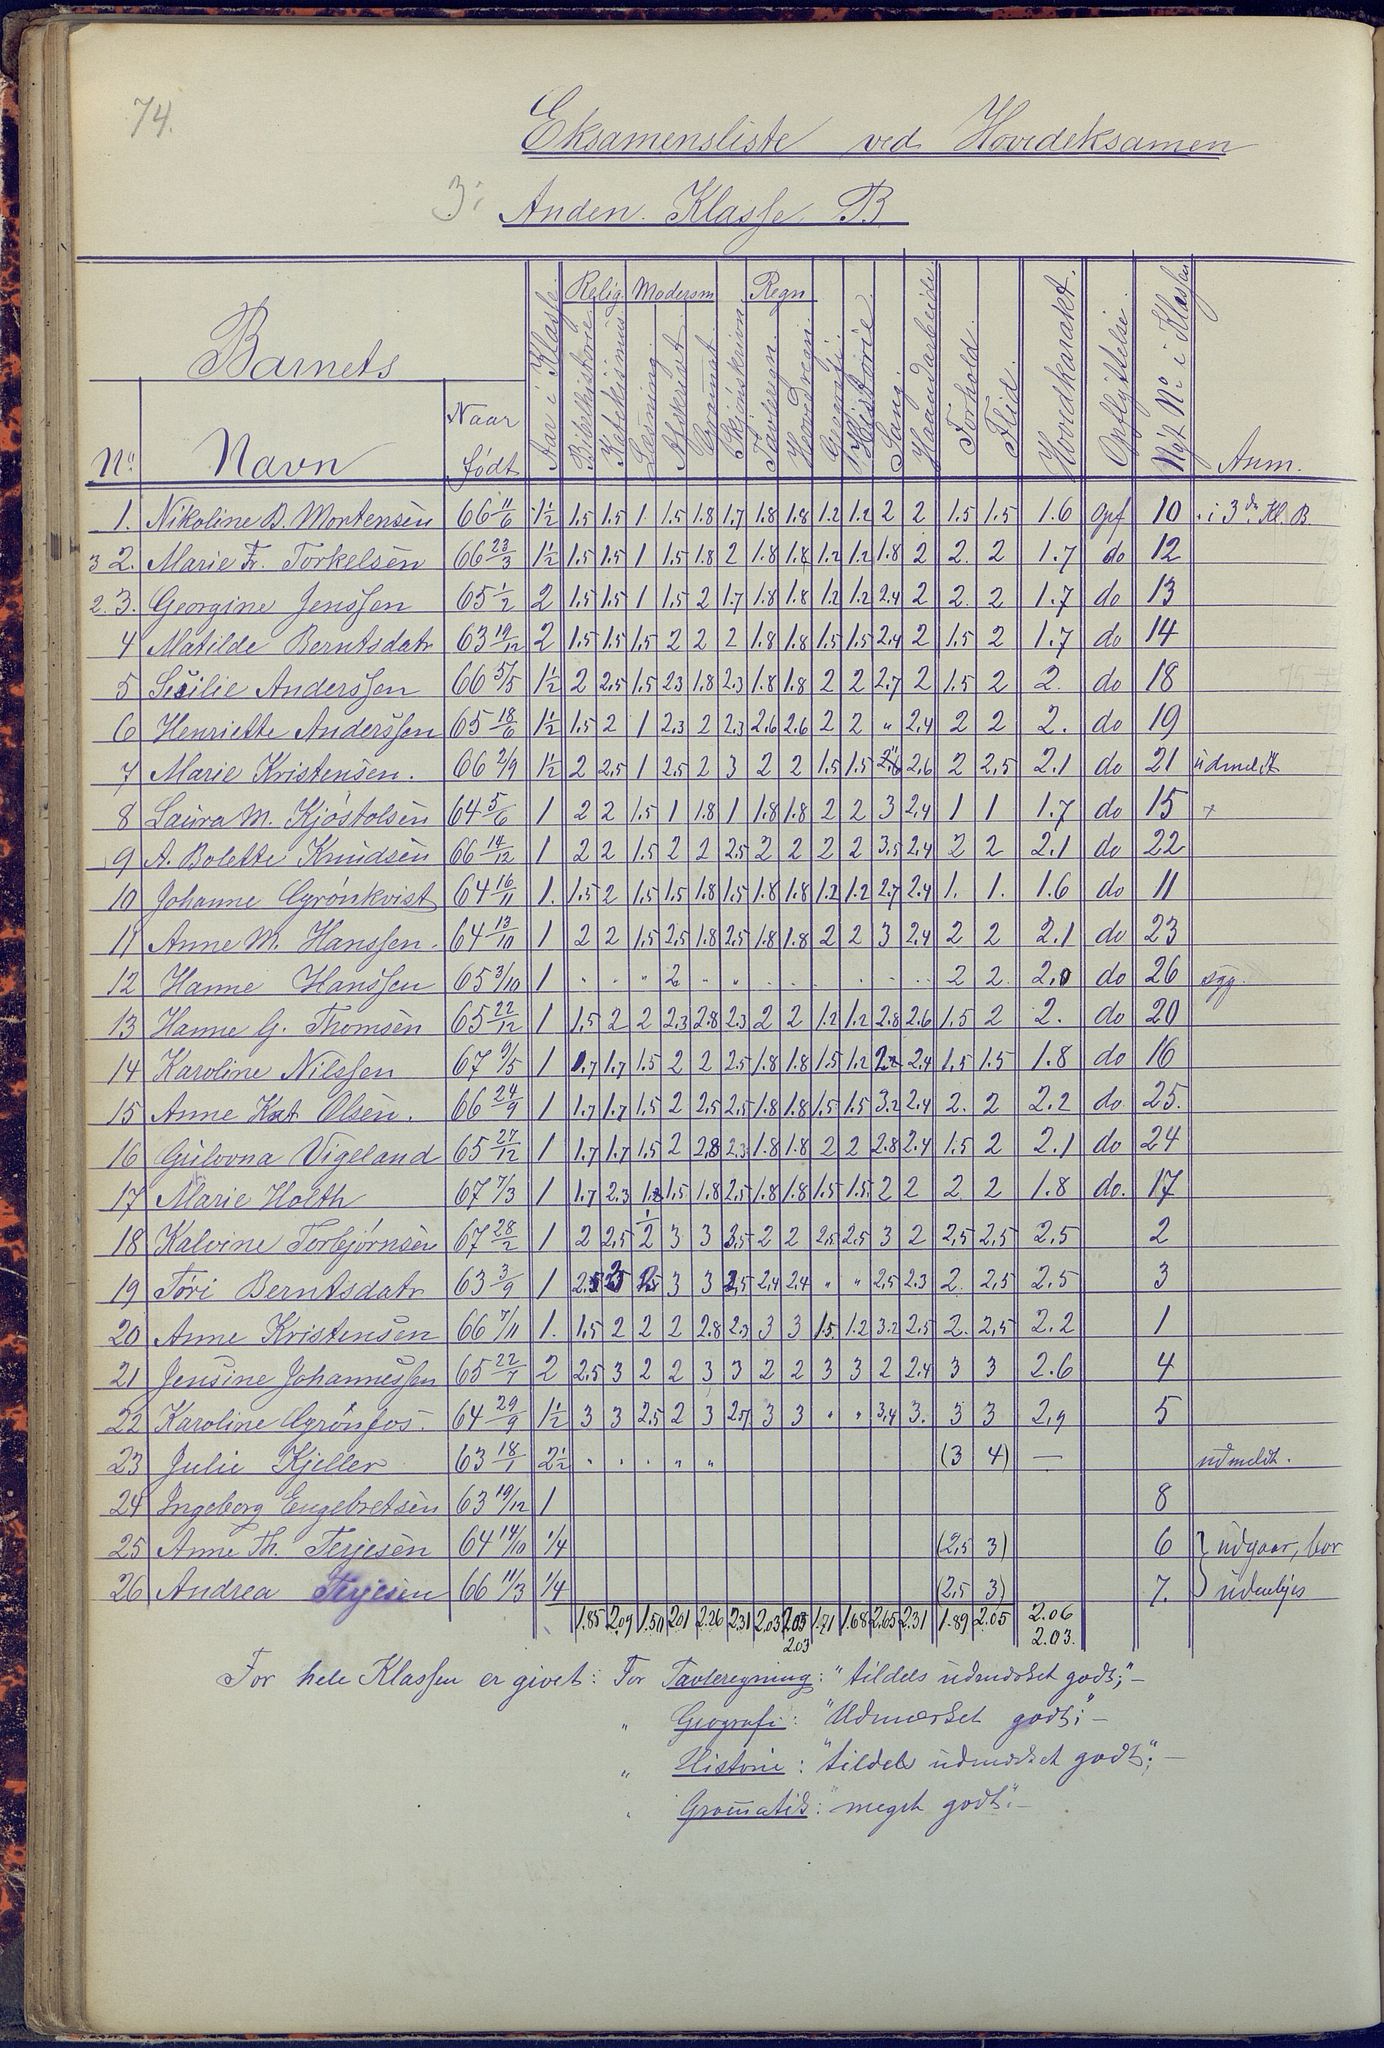 74.
Eksamensliste ved Hovedeksamen
3: Anden Klasse B
Barnets
No Navn Naar født Aar i Klasse Relig Bibelhistorie Katekismus Modersm Læsning Afskrivt Gramat. Skjønskrivn Regn Tavleregn. Hovedregn. Geografi Historie Sang. Haandarbeide Forhold Flid Hovedkarakt. Opflyttelse Nyt No i Klassen Anm.
1. Nikoline B. Mortensen 66 11/6 1½ 1.5 1.5 1. 1.5 1.8 1.7 1.8 1.8 1.2 1.2 2 2 1.5 1.5 1.6 opf 10 i 3de Kl. B
3 2. Marie Fr. Torkelsen 66 23/3 1½ 1.5 1.5 1 1.5 1.8 2 1.8 1.8 1.2 1.2 1.8 2 2. 2 1.7 do 12
2. 3. Georgine Jenssen 65 1/2 2 1.5 1.5 1 1.5 2 1.7 1.8 1.8 1.2 1.2 2.4 2 2. 2 1.7 do 13
4 Matilde Berntsdatr 63 19/12 2 1.5 1.5 1.5 2 2 2 1.8 1.8 1.5 1.5 2.4 2 1.5 2 1.7 do 14
5 Sesilie Anderssen 66 5/5 1½ 2 2.5 1.5 2.3 1.8 2.3 1.8 1.8 2 2 2.7 2 1.5 2 2. do 18
6 Henriette Anderssen 65 18/6 1½ 1.5 2 1 2.3 2 2.3 2.6 2.6 2 2 " 2.4 2 2 2. do 19
7 Marie Kristensen. 66 2/9 1½ 2 2.5 1 2.5 2 3 2 2 1.5 1.5 2.6 2.6 2 2.5 2.1 do 21 udmeldt
8 Laura M. Kjøstolsen 64 5/6 1 2 2 1.5 1 1.8 1 1.8 1.8 2 2 3 2.4 1 1 1.7 do 15 +
9 A. Bolette Knudsen 66 14/12 1 2 2 1.5 2 2 2.5 2 2 2 2 3.5 2.4 2 2 2.1 do 22
10 Johanne Grønkvist 64 16/11 1. 1.5 2 1.5 1.5 1.8 1.5 1.8 1.8 1.2 1.2 2.7 2.4 1. 1. 1.6 do 11
11 Anne M. Hanssen. 64 13/10 1 2 2 1.5 2.5 1.8 2.5 1.8 1.8 2 2 3 2.4 2 2 2.1 do 23
12 Hanne Hanssen 65 3/10 1 " " " 2 " " " " " " " " 2 2 2.0 do 26 syg.
13 Hanne G. Thomsen 65 22/12 1 1.5 2 2 2.3 2.8 2.3 2 2 1.2 1.2 2.8 2.6 1.5 2 2. do 20
14 Karoline Nilssen 67 9/5 1 1.7 1.7 1.5 2 2 2.5 1.8 1.8 1.5 1.2 2.2 2.4 1.5 1.5 1.8 do 16
15 Anne Kat Olsen. 66 24/9 1 1.7 1.7 1.5 2 2.5 2.5 1.8 1.8 1.5 1.5 3.2 2.4 2. 2 2.2 do 25.
16 Gulovna Vigeland 65 27/12 1 1.7 1.7 1.5 2 2.8 2.3 1.8 1.8 2 2 2.8 2.4 1.5 2 2.1 do 24
17 Marie Holth 67 7/3 1 1.7 2.3 1.2 1.5 1.8 2.5 1.8 1.8 1.5 1.5 2 2 2 2 1.8 do. 17
18 Kalvine Torbjørnsen 67 28/2 1 2 2.5 2 3 3 3.5 2 2 2.5 2.5 3 2 2.5 2.5 2.5 2
19 Tøri Berntsdatr 63 3/9 1 2.5 3 2.5 3 3 2.5 2.4 2.4 " " 2.5 2.3 2. 2.5 2.5 3
20 Anne Kristensen 66 7/11 1. 1.5 2 2 2 2.8 2.3 3 3 1.5 1.2 3.2 2.5 2. 2.5 2.2 1
21 Jensine Johannessen 65 22/7 2 2.5 3 2 2 3 3 2 2 3 3 2 2.4 3 3 2.6 4
22 Karoline Grønfos. 64 29/9 1½ 3 3 2.5 2 3 2.7 3 3 " " 3.4 3. 3 3 2.9 5
23 Julie Kjeller 63 18/1 2½ " " " " " (3 4) — udmeldt.
24 Ingeborg Engebretsen 63 19/12 1 8
25 Anne Th. Terjesen 64 14/10 1/4 (2.5 3) 6 } udgaar, bor
26 Andrea Terjesen 66 11/3 1/4 (2.5 3) 7. } udenbyes
1.85 2.09 1.50 2.01 2.26 2.31 2.03 2.03 1.71 1.68 2.65 2.31 1.89 2.05 2.06
2.03 2.03.
For hele Klassen er givet: For Tavleregning: "tildels udmærket godt;" —
" Geografi: "Udmærket godt;" —
" Historie: "tildels udmærket godt"; —
" Gramatik: "meget godt". —